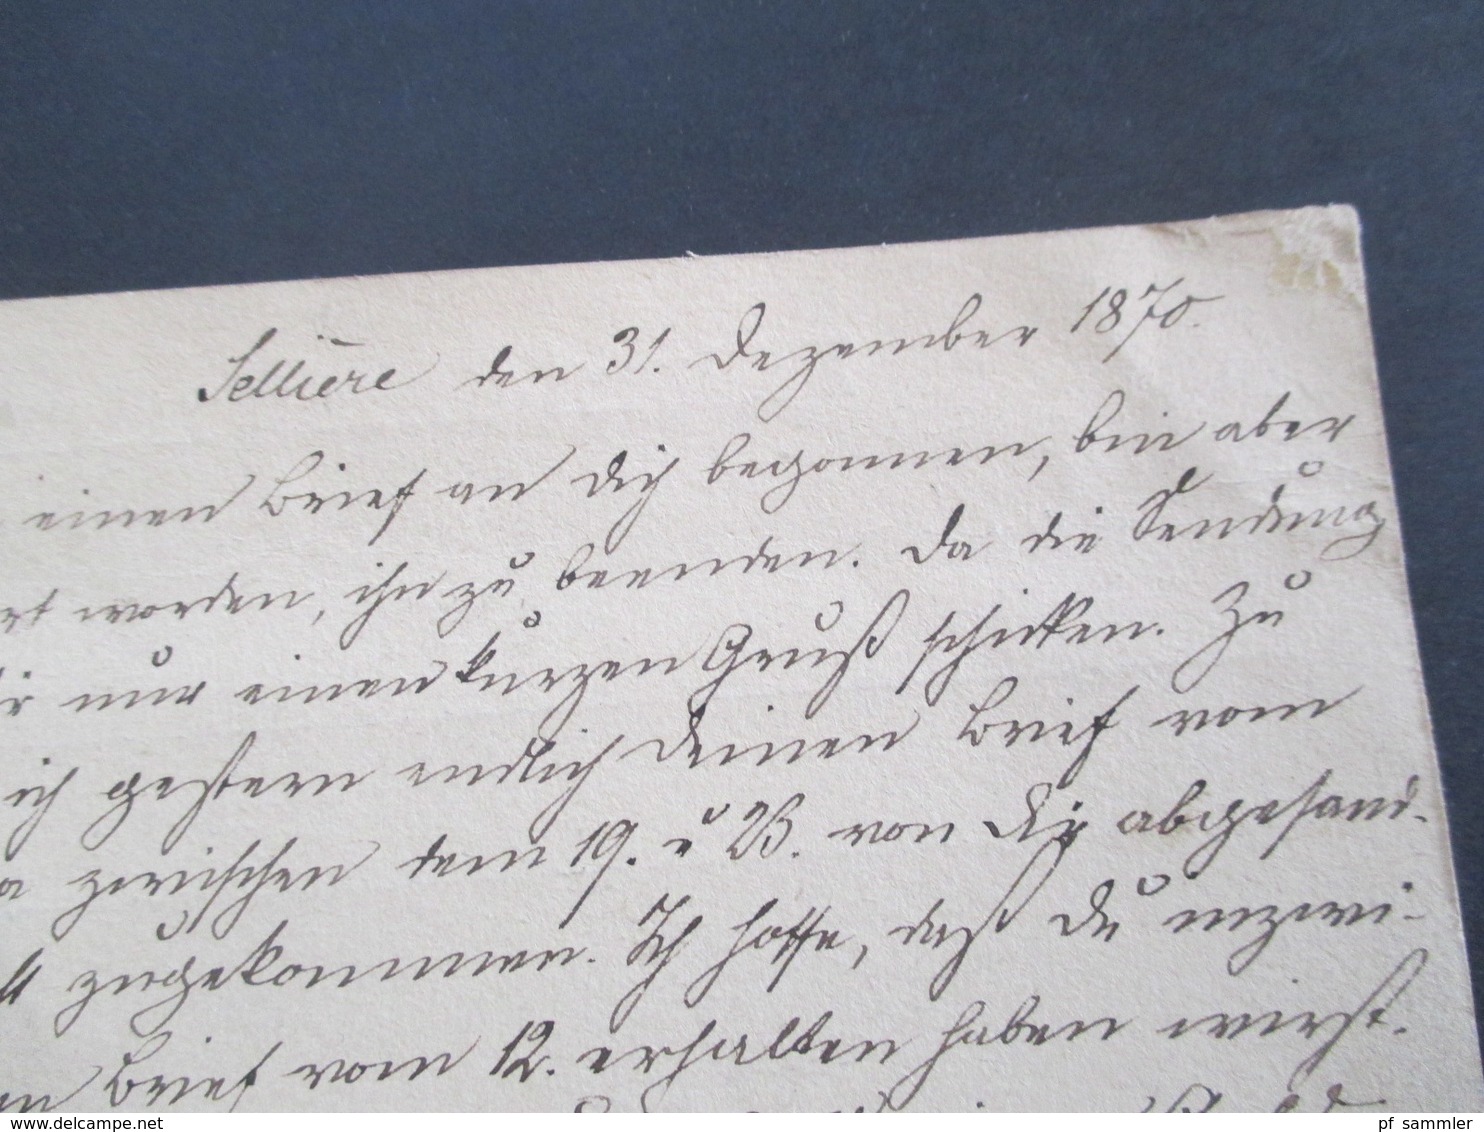 Sellière den 31. Dezember 1870.
einen Brief an Dich begonnen, bin aber
rt worden, ihn zu beenden. Da die Sendung
ir nur einen kurzen Gruß schicken. Zu
ich gestern endlich Deinen Brief vom
zwischen dem 19. u 23. von Dir abgesand-
zugekommen. Ich hoffe, daß Du inzwi-
n Brief vom 12. erhalten haben wirst.
delcampe.net
pf_sammler